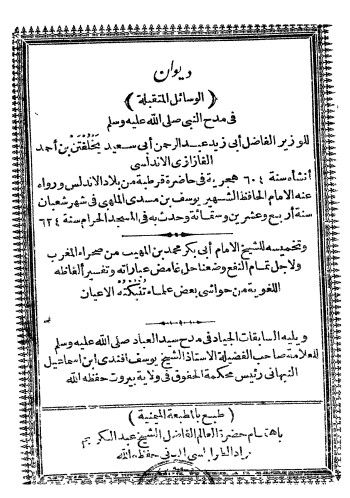 ديوان
(الوسائل المتقبلة)
فى مدح النبى صلى الله عليه وسلم
للوزير الفاضل أبى زيد عبد الرحمن أبى سعيد يخلفتن بن أحمد
الفازازى الاندلسى
أنشاه سنة ٦٠٤ هجرية فى حاضرة قرطبة من بلاد الاندلس ورواه
عنه الامام الحافظ الشهير يوسف بن مسدى المالهى فى شهر شعبان
سنة أربع وعشرين وستمائة وحدث به فى المسجد الحرام سنة ٦٣٤
وتخميسه للشيخ الامام أبى بكر محمد بن المهيب من صحراء المغرب
ولاجل تمام النفع وضعنا حل غامض عباراته وتفسير ألفاظه
اللغوية من حواشى بعض علماء تنبكته الاعيان
ويليه السابقات الجياد فى مدح سيد العباد صلى الله عليه وسلم
للعلامة صاحب الفضيلة الاستاذ الشيخ يوسف افندى ابن اسماعيل
النبهانى رئيس محكمة الحقوق فى ولاية بيروت حفظه الله
(طبع بالمطبعة الميمنية)
باهتمام حضرة العالم الفاضل الشيخ عبد الكريم
مراد الطرابلسى حفظه الله